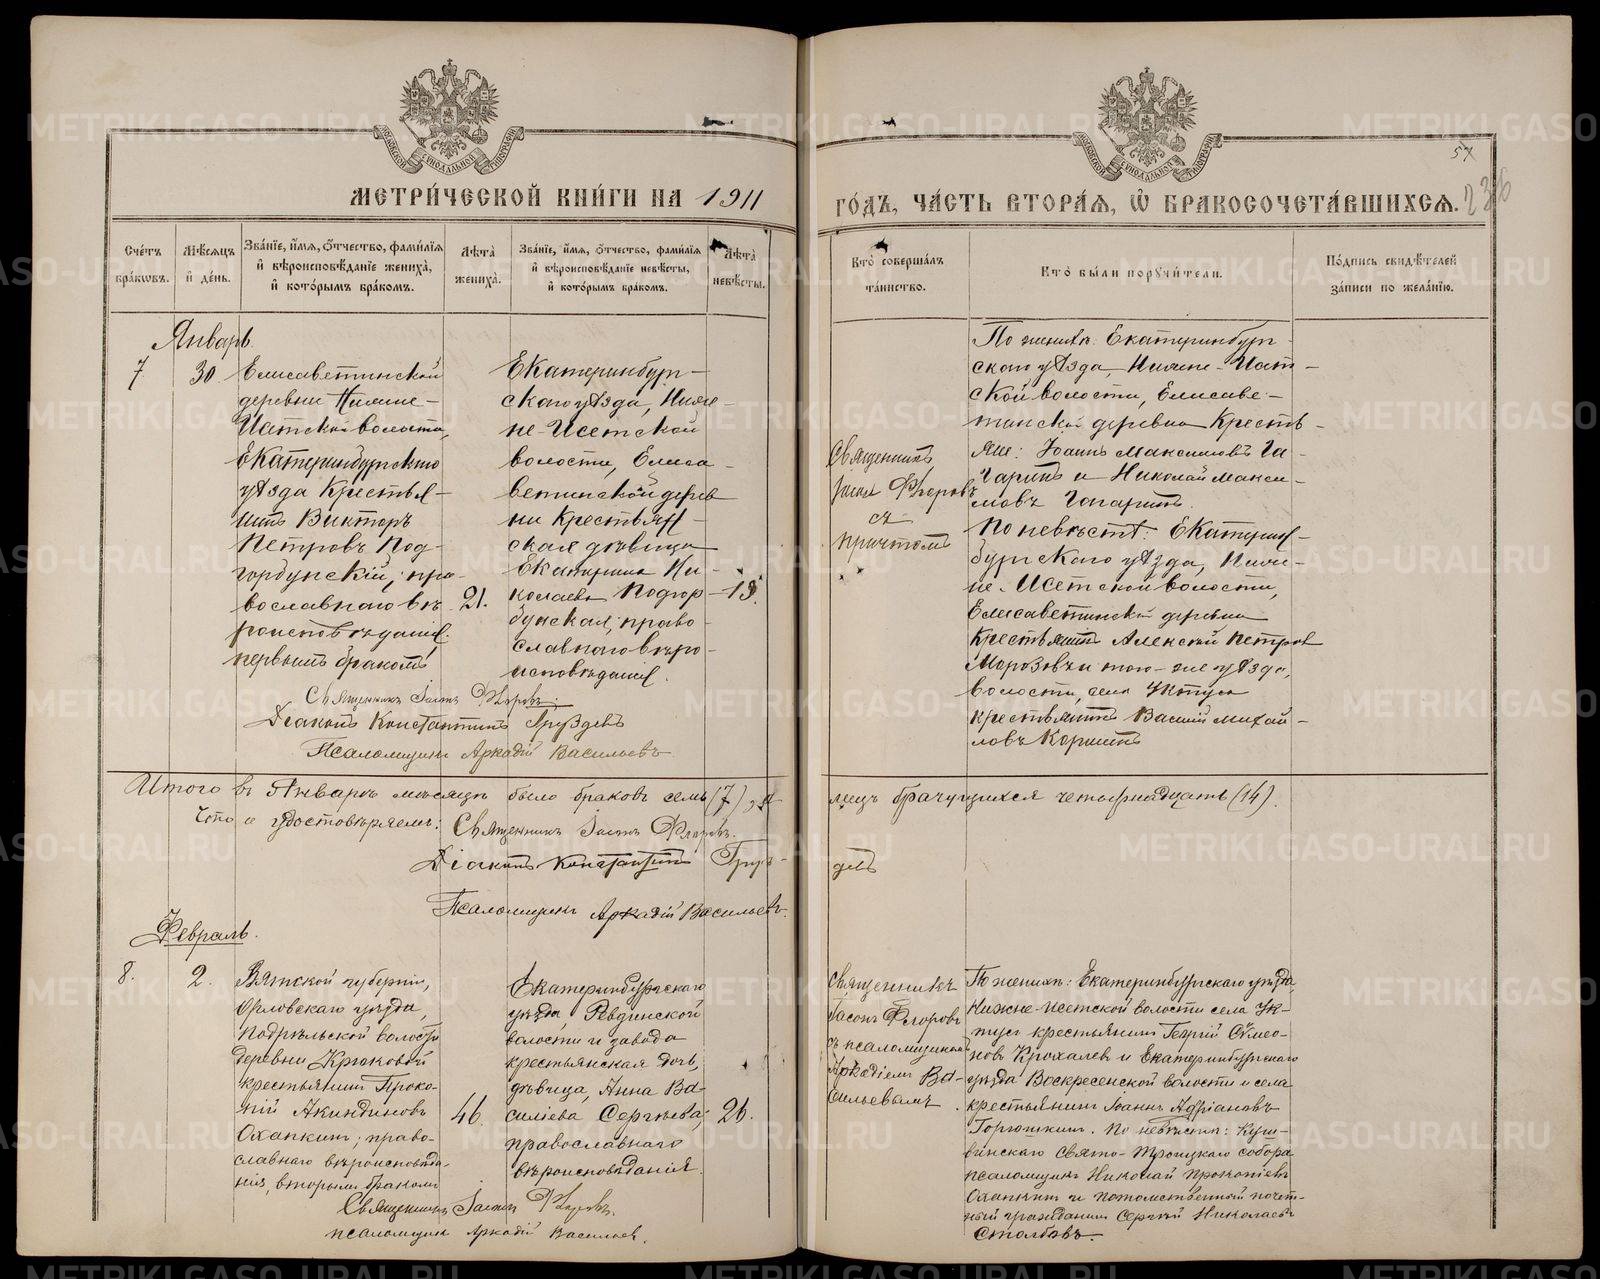 МЕТРИ́ЧЕСКОЙ КНИ́ГИ НА 1911
ГО́ДЪ, ЧА́СТЬ ВТОРА́Я, Ѽ БРАКОСОЧЕТА́ВШИХСЯ.
57
236
Сче́тъ бра́кωвъ.
Мѣ́сяцъ и҆ де́нь.
Зва́нїе, и҆́мя, ѻ҆́тчество, фами́лїя и҆ вѣроисповѣ́данїе жениха̀, и҆ кото́рымъ бра́комъ.
Лѣ́та жениха̀.
Зва́нїе, и҆́мя, ѻ҆́тчество, фами́лїя и҆ вѣроисповѣ́данїе невѣ́сты, и҆ кото́рымъ бра́комъ.
Лѣ́та невѣ́сты.
Кто̀ соверша́лъ та́инство.
Кто̀ бы́ли порꙋчи́тели.
По́дпись свидѣ́телей за́писи по жела́нїю.
Январь.
7
30
Елисаветинской
деревни Нижне-
Исетской волости,
Екатеринбургскаго
уѣзда крестья-
нинъ Викторъ
Петровъ Под-
горбунскій, пра-
вославнаго вѣ-
роисповѣданія.
первымъ бракомъ
21.
Екатеринбург-
скаго уѣзда, Ниж-
не-Исетской
волости, Елиса-
ветинской дерев
ни крестьян-
ская дѣвица
Екатерина Ни-
колаева Подгор-
бунская, право-
славнаго вѣро-
исповѣданія.
19.
Священникъ
Іасонъ Флоровъ
съ
причтомъ
По женихѣ: Екатеринбург-
скаго уѣзда, Нижне-Исет-
ской волости, Елисаве-
тинской деревни кресть-
яне: Іоаннъ Максимовъ Га-
гаринъ и Николай Макси-
мовъ Гагаринъ.
По невѣстѣ: Екатерин-
бургскаго уѣзда, Ниж-
не-Исетской волости,
Елисаветинской деревни
крестьянинъ Алексѣй Петров
Морозовъ и того-же уѣзда,
волости, села Уктуса
крестьянинъ Василій Михай-
ловъ
Священникъ Іасонъ Флоровъ.
Діаконъ Константинъ Груздевъ
Псаломщикъ Аркадій Васильевъ
Итого въ Январѣ мѣсяцѣ было браковъ семь (7), а
лицъ брачущихся четырнадцать (14).
Что и удостовѣряемъ: Священникъ Іасонъ Флоровъ.
Діаконъ Константинъ Груз-
девъ
Псаломщикъ Аркадій Васильевъ.
Февраль.
8.
2.
Вятской губерніи,
Орловскаго уѣзда,
Подрѣльской волости
деревни Крюковой
крестьянинъ Проко-
пій Акиндиновъ
Охапкинъ; право-
славнаго вѣроисповѣда-
нія, вторымъ бракомъ
46.
Екатеринбургскаго
уѣзда, Ревдинской
волости и завода
крестьянская дочь,
дѣвица, Анна Ва-
силіева Сергѣева;
православнаго
вѣроисповѣданія.
26.
Священникъ
Іасонъ Флоровъ
съ псаломщикомъ
Аркадіемъ Ва-
сильевымъ.
По женихѣ: Екатеринбургскаго уѣзда,
Нижне-Исетской волости села Ук-
туса крестьянинъ Георгій Сѵмео-
новъ Крохалевъ и Екатеринбургскаго
уѣзда Воскресенской волости и села
крестьянинъ Іоаннъ Адріановъ
По невѣстѣ: Куш-
винскаго Свято-Троицкаго собора
псаломщикъ Николай Прокопіевъ
Охапкинъ и потомственный почет-
ный гражданинъ Сергѣй Николаевъ
Столбовъ.
Священникъ Іасонъ Флоровъ.
псаломщикъ Аркадій Васильев.